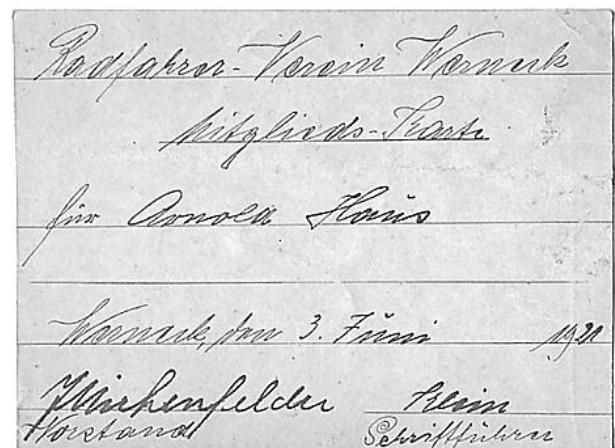 Radfahrer-Verein Werneck
Mitglieds-Karte
für Arnold Haus
Werneck, den 3. Juni 1921
Klein
Vorstand Schriftführer